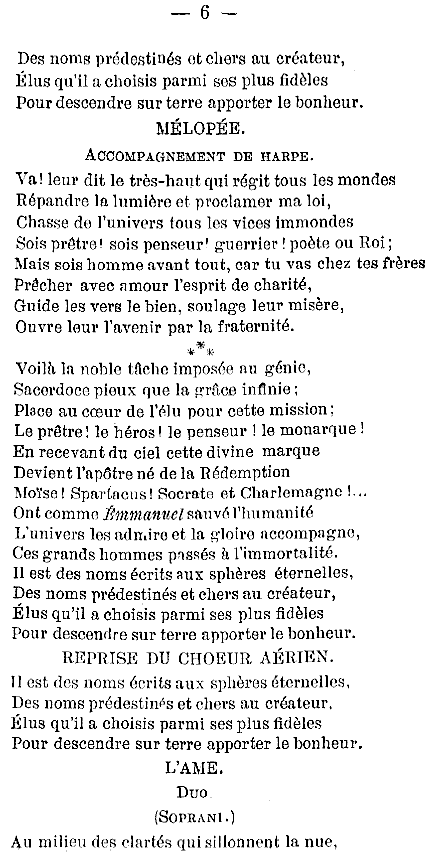 — 6 —
Des noms prédestinés et chers au créateur,
Élus qu'il a choisis parmi ses plus fidèles
Pour descendre sur terre apporter le bonheur.
MÉLOPÉE.
ACCOMPAGNEMENT DE HARPE.
Va! leur dit le très-haut qui régit tous les mondes
Répandre la lumière et proclamer ma loi,
Chasse de l'univers tous les vices immondes
Sois prêtre! sois penseur! guerrier! poète ou Roi;
Mais sois homme avant tout, car tu vas chez tes frères
Prêcher avec amour l'esprit de charité,
Guide les vers le bien, soulage leur misère,
Ouvre leur l'avenir par la fraternité.
***
Voilà la noble tâche imposée au génie,
Sacerdoce pieux que la grâce infinie;
Place au cœur de l'élu pour cette mission;
Le prêtre! le héros! le penseur! le monarque!
En recevant du ciel cette divine marque
Devient l'apôtre né de la Rédemption
Moïse! Spartacus! Socrate et Charlemagne!...
Ont comme Émmanuel sauvé l'humanité
L'univers les admire et la gloire accompagne,
Ces grands hommes passés à l'immortalité.
Il est des noms écrits aux sphères éternelles,
Des noms prédestinés et chers au créateur,
Élus qu'il a choisis parmi ses plus fidèles
Pour descendre sur terre apporter le bonheur.
REPRISE DU CHOEUR AÉRIEN.
Il est des noms écrits aux sphères éternelles,
Des noms prédestinés et chers au créateur,
Élus qu'il a choisis parmi ses plus fidèles
Pour descendre sur terre apporter le bonheur.
L'AME.
DUO
(SOPRANI.)
Au milieu des clartés qui sillonnent la nue,